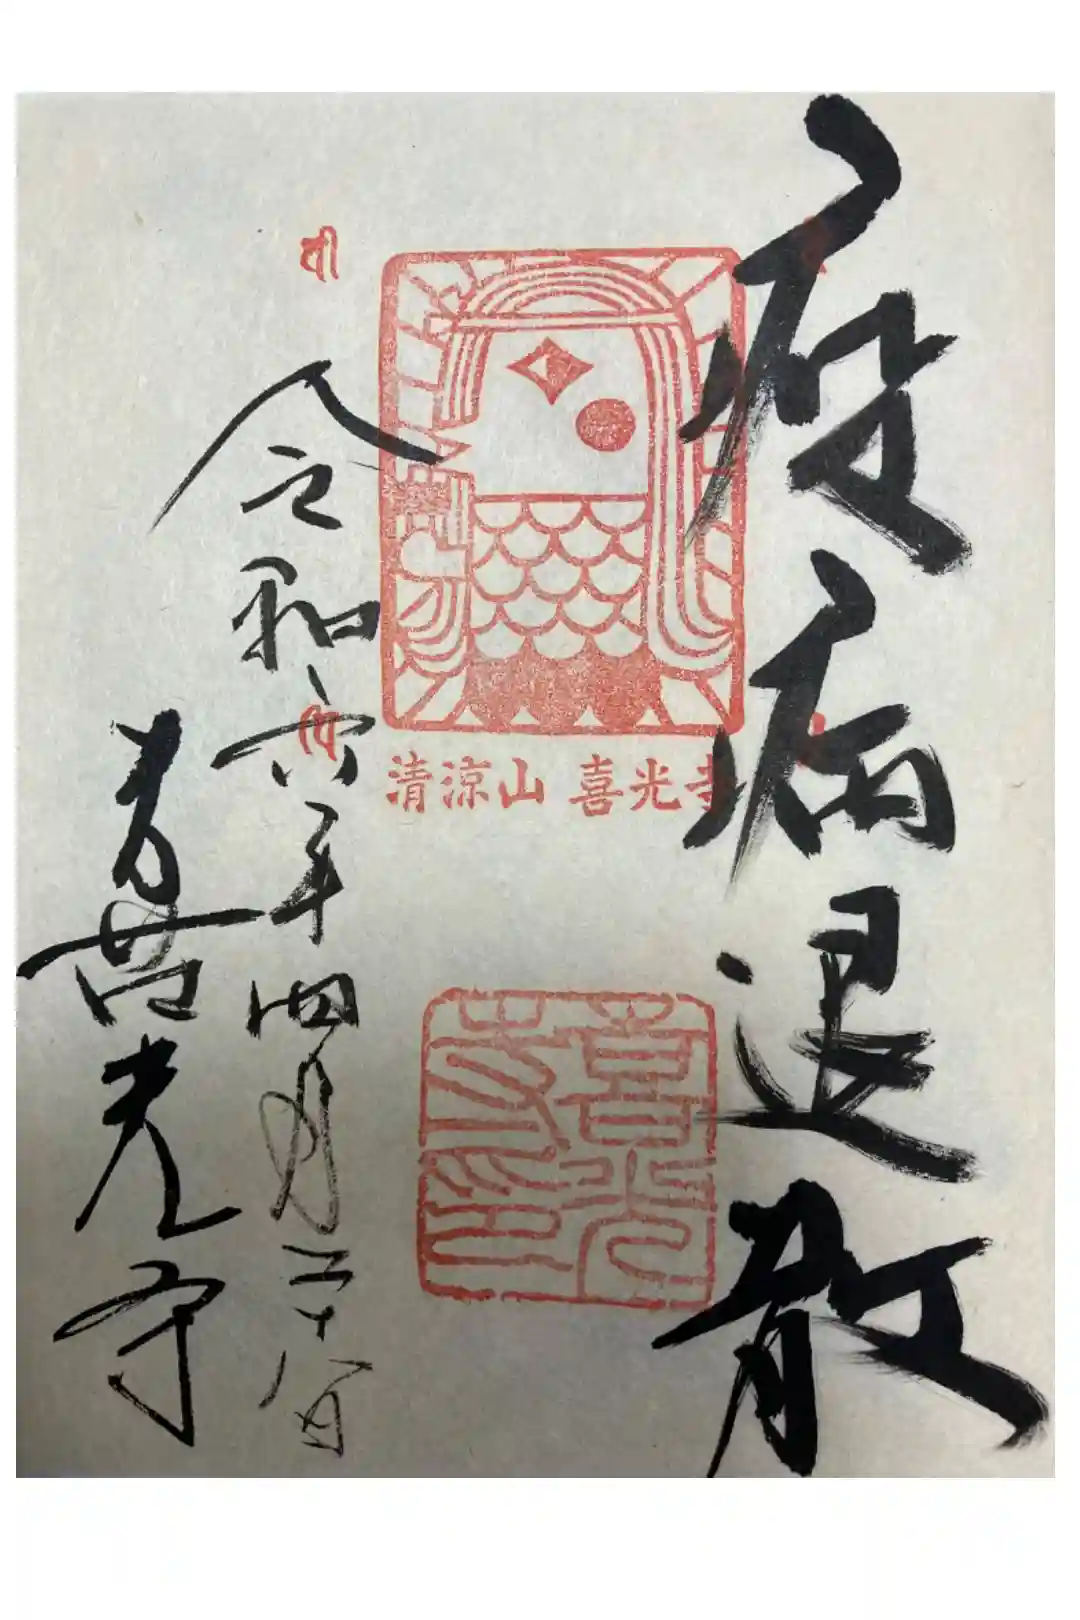 疫病退散
清涼山 喜光寺
喜光寺印
令和六年四月二十八日
喜光寺